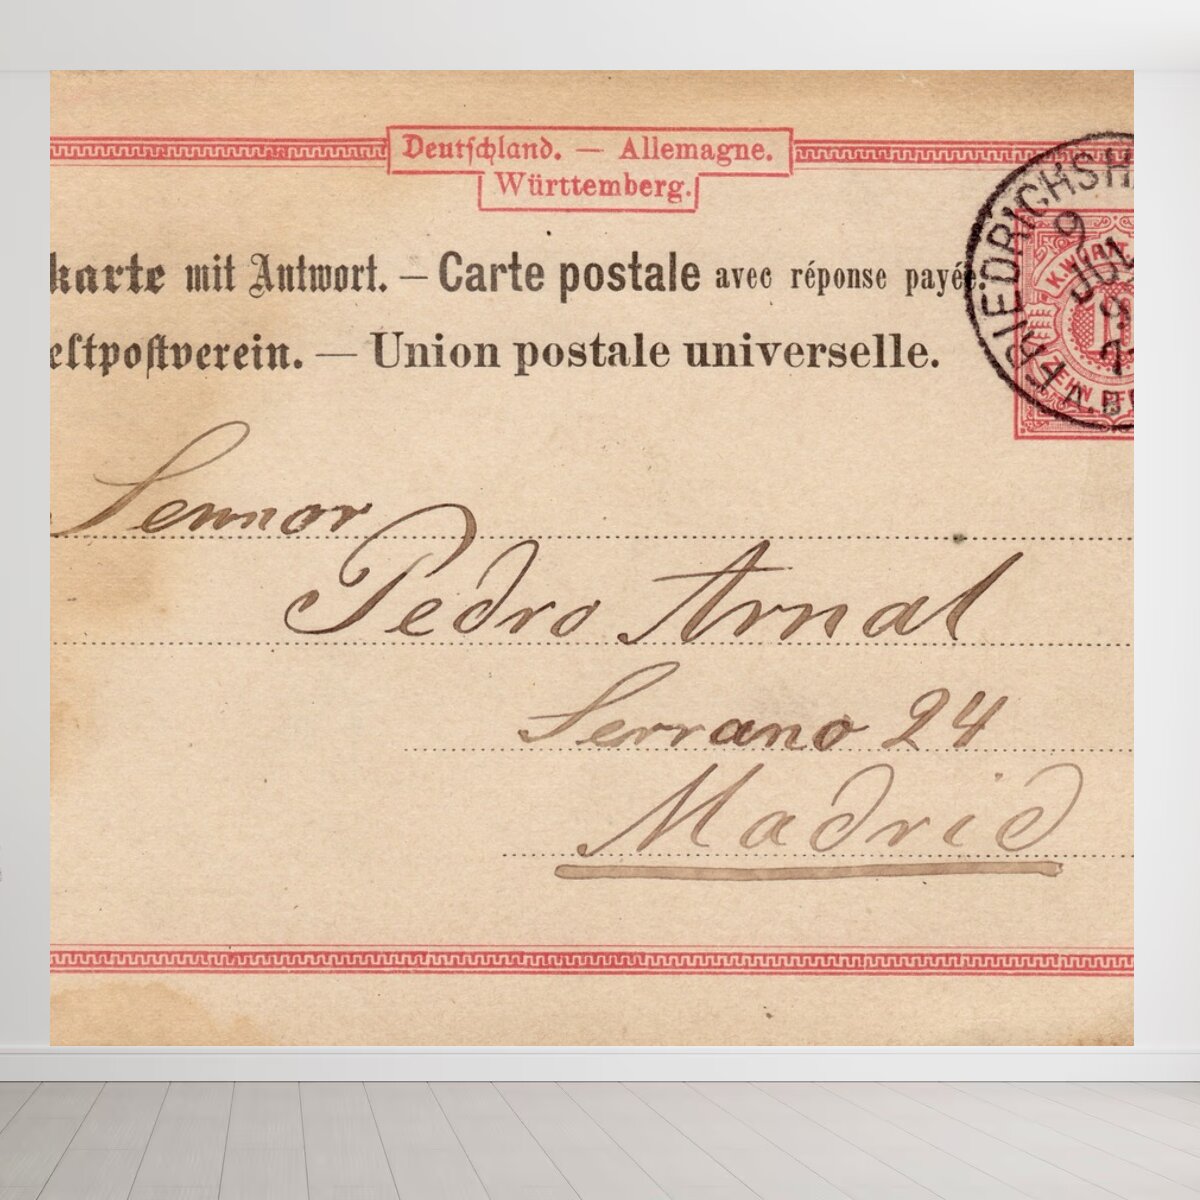 Deutschland. — Allemagne.
Württemberg.
karte mit Antwort. — Carte postale avec réponse payée.
eltpostverein. — Union postale universelle.
FRIEDRICHSH
9
JUL
9
7-
A.B
K.WÜRTT
10
ZEHN PF
Sennor
Pedro Arnal
Serrano 24
Madrid